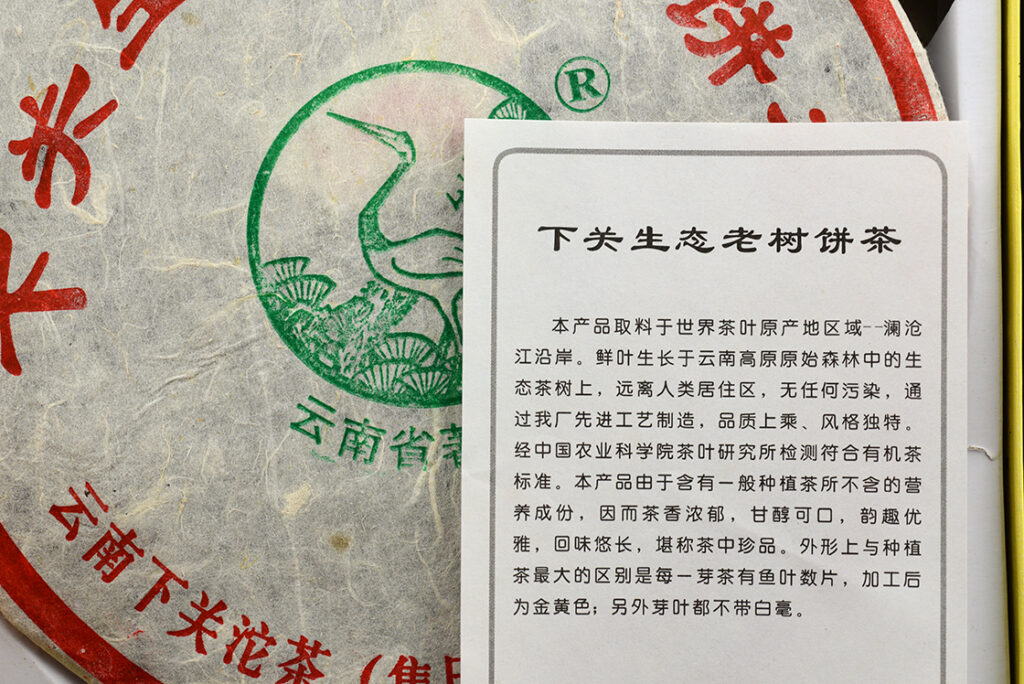 ®
下关生态老树饼茶
本产品取料于世界茶叶原产地区域--澜沧
江沿岸。鲜叶生长于云南高原原始森林中的生
态茶树上，远离人类居住区，无任何污染，通
过我厂先进工艺制造，品质上乘、风格独特。
经中国农业科学院茶叶研究所检测符合有机茶
标准。本产品由于含有一般种植茶所不含的营
养成份，因而茶香浓郁，甘醇可口，韵趣优
雅，回味悠长，堪称茶中珍品。外形上与种植
茶最大的区别是每一芽茶有鱼叶数片，加工后
为金黄色；另外芽叶都不带白毫。
下关
饼
云南省
云南下关沱茶（集